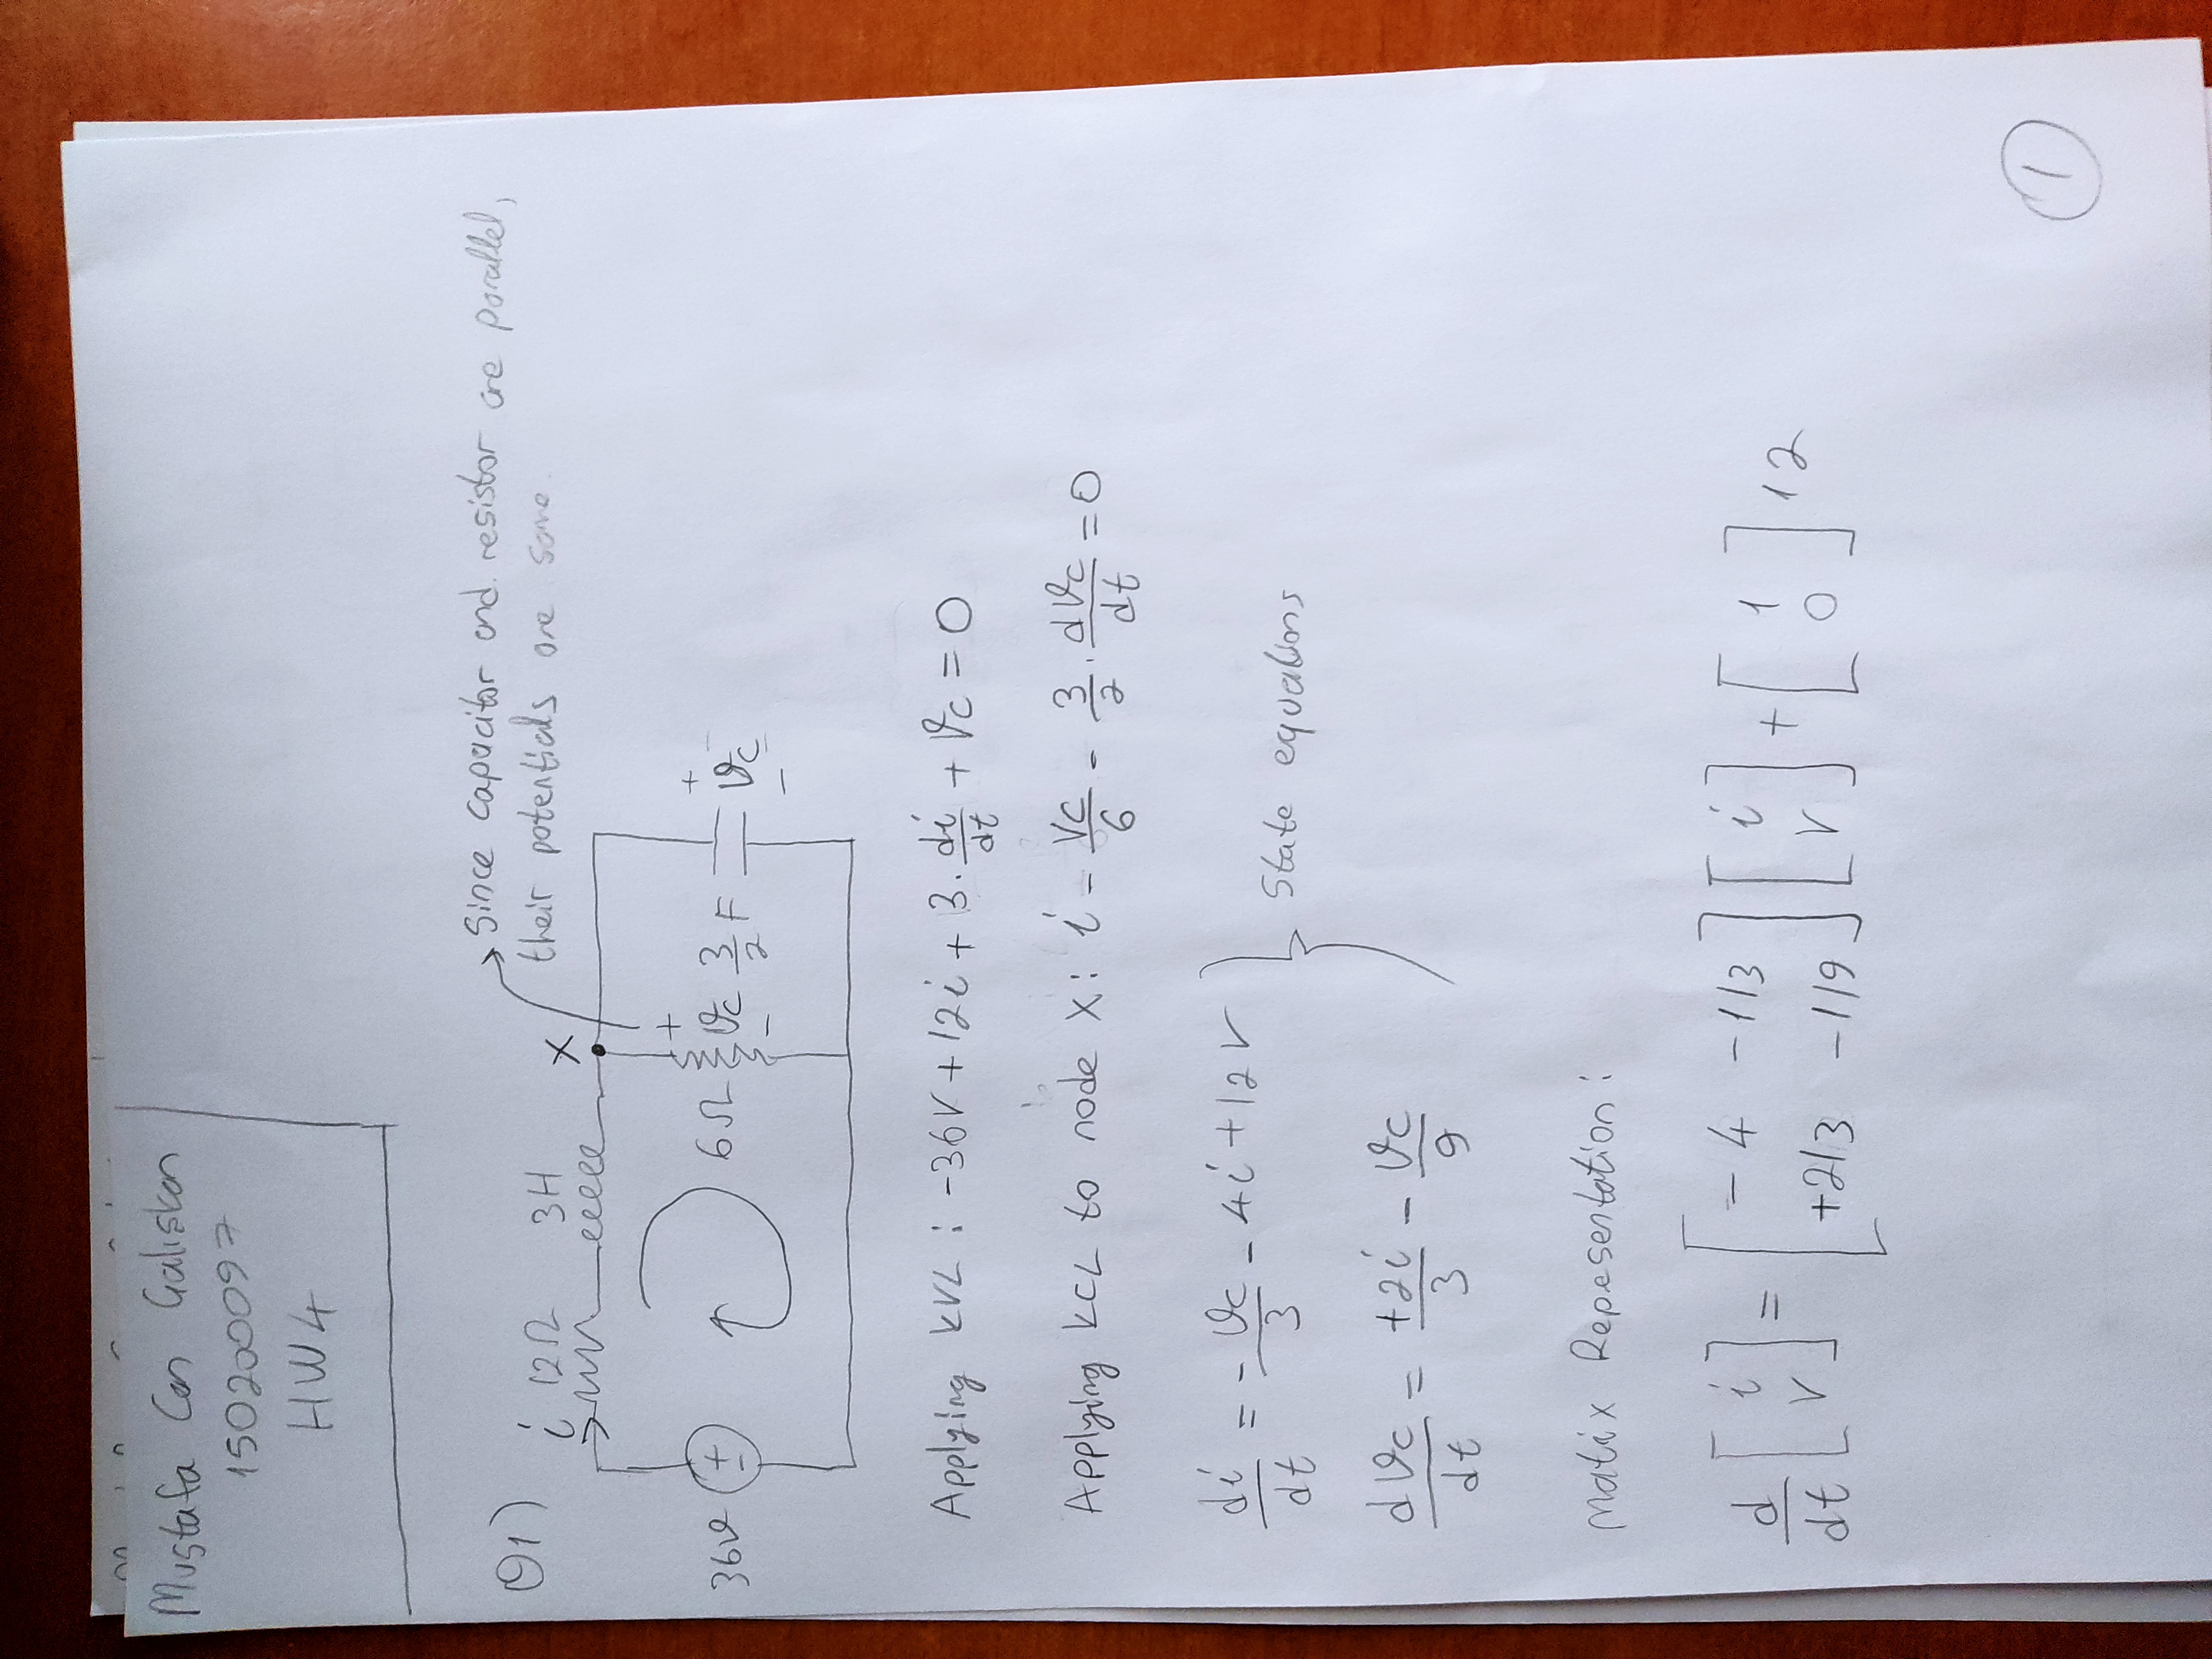 Mustafa Can Çalışkan
150200097
HW4
Q1)
Since capacitor and resistor are parallel,
their potentials are same.
i 12Ω 3H X
36v + - 6Ω + vc - 3/2 F + vc -
Applying KVL : -36V + 12i + 3. di/dt + Vc = 0
Applying KCL to node X: i - Vc/6 - 3/2 . dVc/dt = 0
di/dt = - Vc/3 - 4i + 12V
State equations
dVc/dt = +2i/3 - Vc/9
Matix Repesentation:
d/dt [ i ; V ] = [ -4 -1/3 ; +2/3 -1/9 ] [ i ; V ] + [ 1 ; 0 ] 12
1